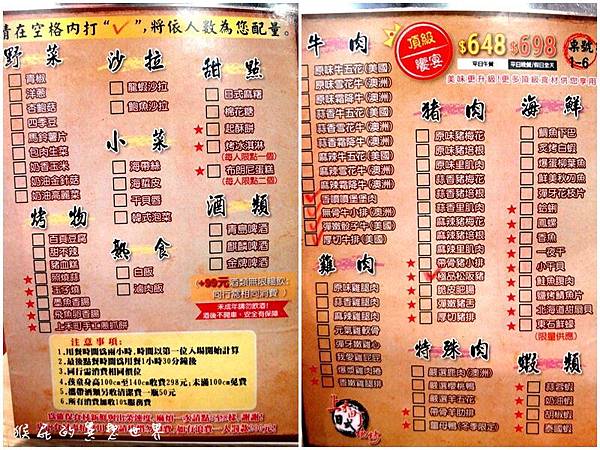 請在空格內打"✓",將依人數為您配量。
野菜
青椒
洋蔥
杏鮑菇
四季豆
馬鈴薯片
包肉生菜
奶香玉米
奶油金針菇
奶油高麗菜
沙拉
龍蝦沙拉
鮑魚沙拉
小菜
海帶絲
海蜇皮
干貝唇
韓式泡菜
甜點
日式麻糬
棉花糖
起酥餅
烤冰淇淋
(每人限點一個)
布朗尼蛋糕
(每人限點二個)
烤物
百頁豆腐
甜不辣
豬血糕
照燒絲
玉子燒
墨魚香腸
飛魚卵香腸
上禾町手工蔥抓餅
熱食
白飯
滷肉飯
酒類
青島啤酒
麒麟啤酒
金牌啤酒
+99元酒類無限暢飲
同行需相同消費
未成年請勿飲酒!
酒後不開車,安全有保障
注意事項:
1.用餐時間為兩小時,時間以第一位入場開始計算
2.最後點餐時間為用餐1小時30分鐘後
3.同行需消費相同價位
4.孩童身高100cm至140cm收費298元;未滿100cm免費
5.攜帶酒類另收清潔費一瓶50元
6.所有消費加收10%服務費
猴屁的異想世界
牛肉
原味牛五花(美國)
原味雪花牛(澳洲)
原味霜降牛(澳洲)
蒜香牛五花(美國)
蒜香雪花牛(澳洲)
蒜香霜降牛(澳洲)
麻辣牛五花(美國)
麻辣雪花牛(澳洲)
麻辣霜降牛(澳洲)
香噴噴堡堡肉
無骨牛小排(澳洲)
彈嫩骰子牛(美國)
厚切牛排(美國)
雞肉
原味雞腿肉
蒜香雞腿肉
麻辣雞腿肉
元氣雞軟骨
彈牙雞心
我愛雞屁屁
爆漿雞翅
香嫩雞腿排
頂級饗宴
$648
平日午餐
$698
平日晚餐/假日全天
桌號
1-6
美味更升級!更多頂級食材供您享用
豬肉
原味豬梅花
原味豬培根
原味里肌肉
蒜香豬梅花
蒜香豬培根
蒜香里肌肉
麻辣豬梅花
麻辣豬培根
麻辣里肌肉
帶骨豬小排
極品松阪豬
脆皮肥腸
彈嫩豬舌
厚切豬排
特殊肉
嚴選鹿肉(澳洲)
嚴選櫻桃鴨
嚴選羊五花
帶骨羊肋排
薑母鴨(冬季限定)
海鮮
鯛魚下巴
炙烤白蝦
爆蛋柳葉魚
鮮美秋刀魚
彈牙花枝片
蛤蜊
鳳螺
香魚
一夜干
小干貝
鮭魚腹肉
鹽烤鯖魚片
北海道甜扇貝
東石鮮蠔
(限量供應)
蝦類
蒜蓉蝦
奶油蝦
胡椒蝦
泰國蝦